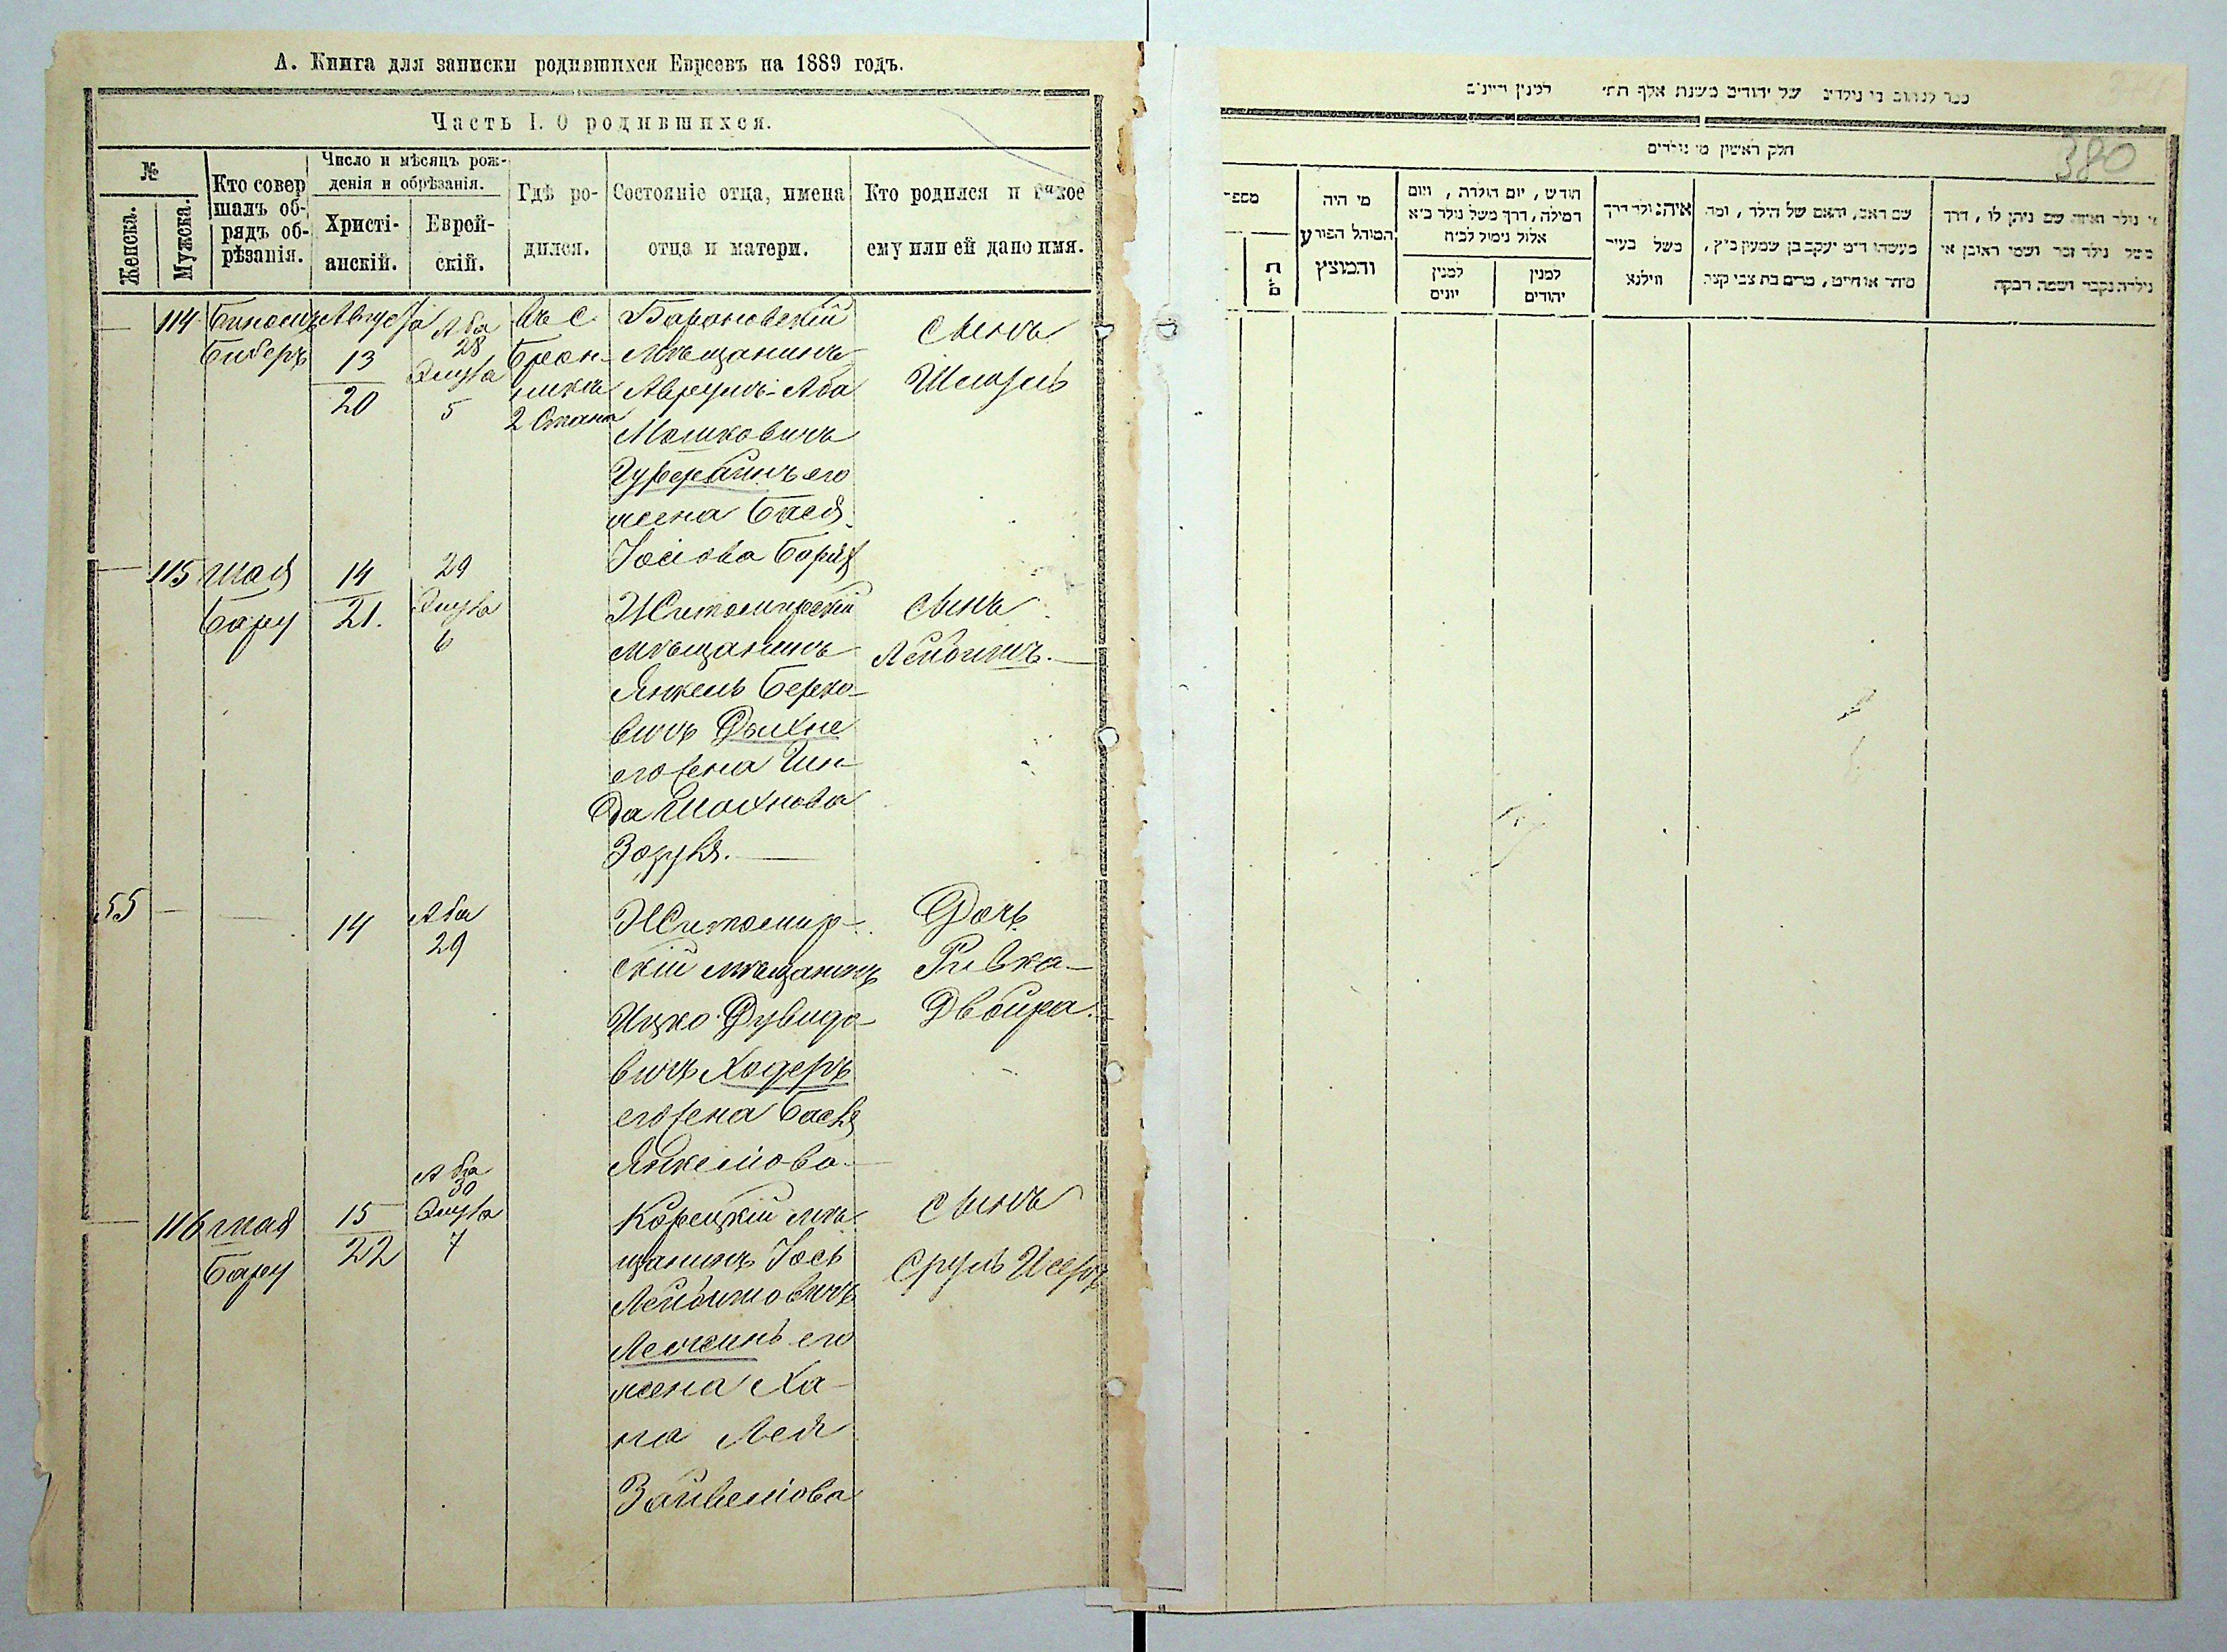 А. Книга для записки родившихся Евреевъ на 1889 годъ.
Часть I. О родившихся.
№
Женска.
Мужска.
Кто совер
шалъ об-
рядъ об-
рѣзанія.
Число и мѣсяцъ рож-
денія и обрѣзанія.
Христі-
анскій.
Еврей-
скій.
Гдѣ ро-
дился.
Состояніе отца, имена
отца и матери.
Кто родился и какое
ему или ей дано имя.
114
Биберъ
Августа
13
20
Аба
28
Элула
5
въ с
2 Стана
Барановскій
мѣщанинъ
Аврумъ-Аба
Мошковичъ
его
жена Бася
Іосіова
сынъ
Шмуль
115 Шая
Бару
14
21.
29
Элула
6
Житомирскій
мѣщанинъ
Янкель Берко-
вичъ
его жена Шин-
да Шахнова
сынъ
Лейбишъ.
55
14
Аба
29
Житомир-
скій мѣщанинъ
Ицко Дувидо-
вичъ Ходеръ
его жена Бася
Янкеліова
Дочь
Ривка-
Двойра.
116 Шая
Бару
15
22
Аба
30
Элула
7
Корецкій мѣ-
щанинъ Іось
Лейбишовичъ
его
жена Ха-
на Лея
Зайвеліова
сынъ
Сруль Исеръ
380
חלק ראשון מי נולדים
מספר
מי היה
המוהל הפורע
והמוצץ
חודש, יום הולדת, ויום
המילה, דרך משל נולד כ״א
אלול נימול לכ״ח
למנין
יונים
למנין
יהודים
איה נולד דרך
משל בעיר
ווילנא
שם האב, והאם של הילד, ומה
מעשהו ד״מ יעקב בן שמעון כ״ץ,
סוחר או חייט, מרים בת צבי קצר.
נולד ואיזה שם ניתן לו, דרך
משל נולד זכר ושמו ראובן או
נולדה נקבה ושמה רבקה